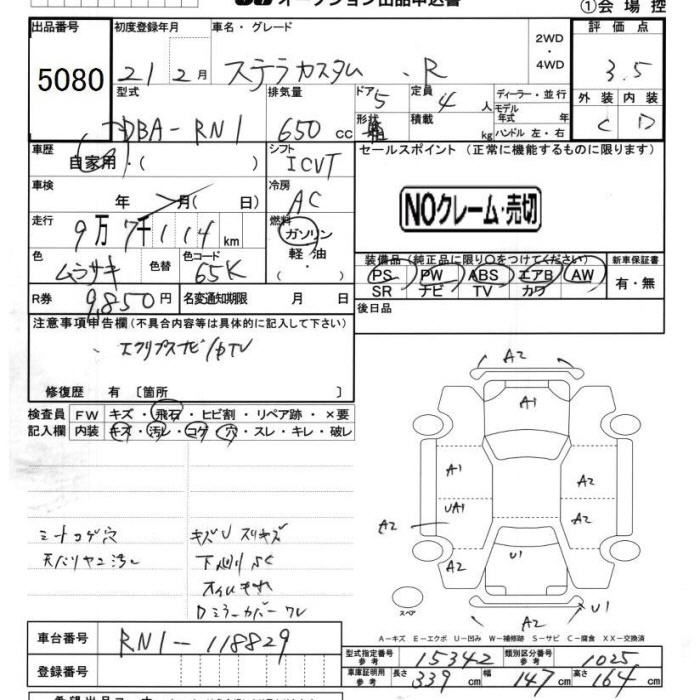 オークション出品申込書
①会場控
出品番号 5080
初度登録年月 21 2月
車名・グレード ステラカスタム R
2WD・4WD
評価点 3.5
型式 DBA-RN1
排気量 650 cc
ドア 5
定員 4 人
形状 箱
積載 kg
ディーラー・並行
モデル年式 年
ハンドル 左・右
外装 C
内装 D
車歴 自家用・( )
シフト ICVT
セールスポイント (正常に機能するものに限ります)
車検 年 月( 日)
冷房 AC
NOクレーム・売切
走行 9万7千114km
燃料 ガソリン 軽油 ・( )
色 ムラサキ
色替
色コード 65K
装備品(純正品に限り○をつけてください)
PS PW ABS エアB AW
SR ナビ TV カワ
新車保証書 有・無
R券 9,850円
名変通知期限 月 日
後日品
注意事項申告欄(不具合内容等は具体的に記入して下さい)
・エクリプスナビ/中TV
修復歴 有 〔箇所 〕
検査員記入欄
FW キズ・飛石・ヒビ割・リペア跡・×要
内装 キズ・汚レ・コゲ・穴・スレ・キレ・破レ
シートコゲ穴
天バリヤニ汚レ
キズU スリキズ
下廻リSC
オイルもれ
Dミラーカバーワレ
A2
A1
A1
A2
UA1
A2
A2
A2
U1
A2
A2
U1
スペア
A-キズ E-エクボ U-凹み W-補修跡 S-サビ C-腐食 XX-交換済
車台番号 RN1-118829
登録番号
型式指定番号参考 15342
類別区分番号参考 1025
車庫証明用参考 長さ 339cm 幅 147cm 高さ 164cm